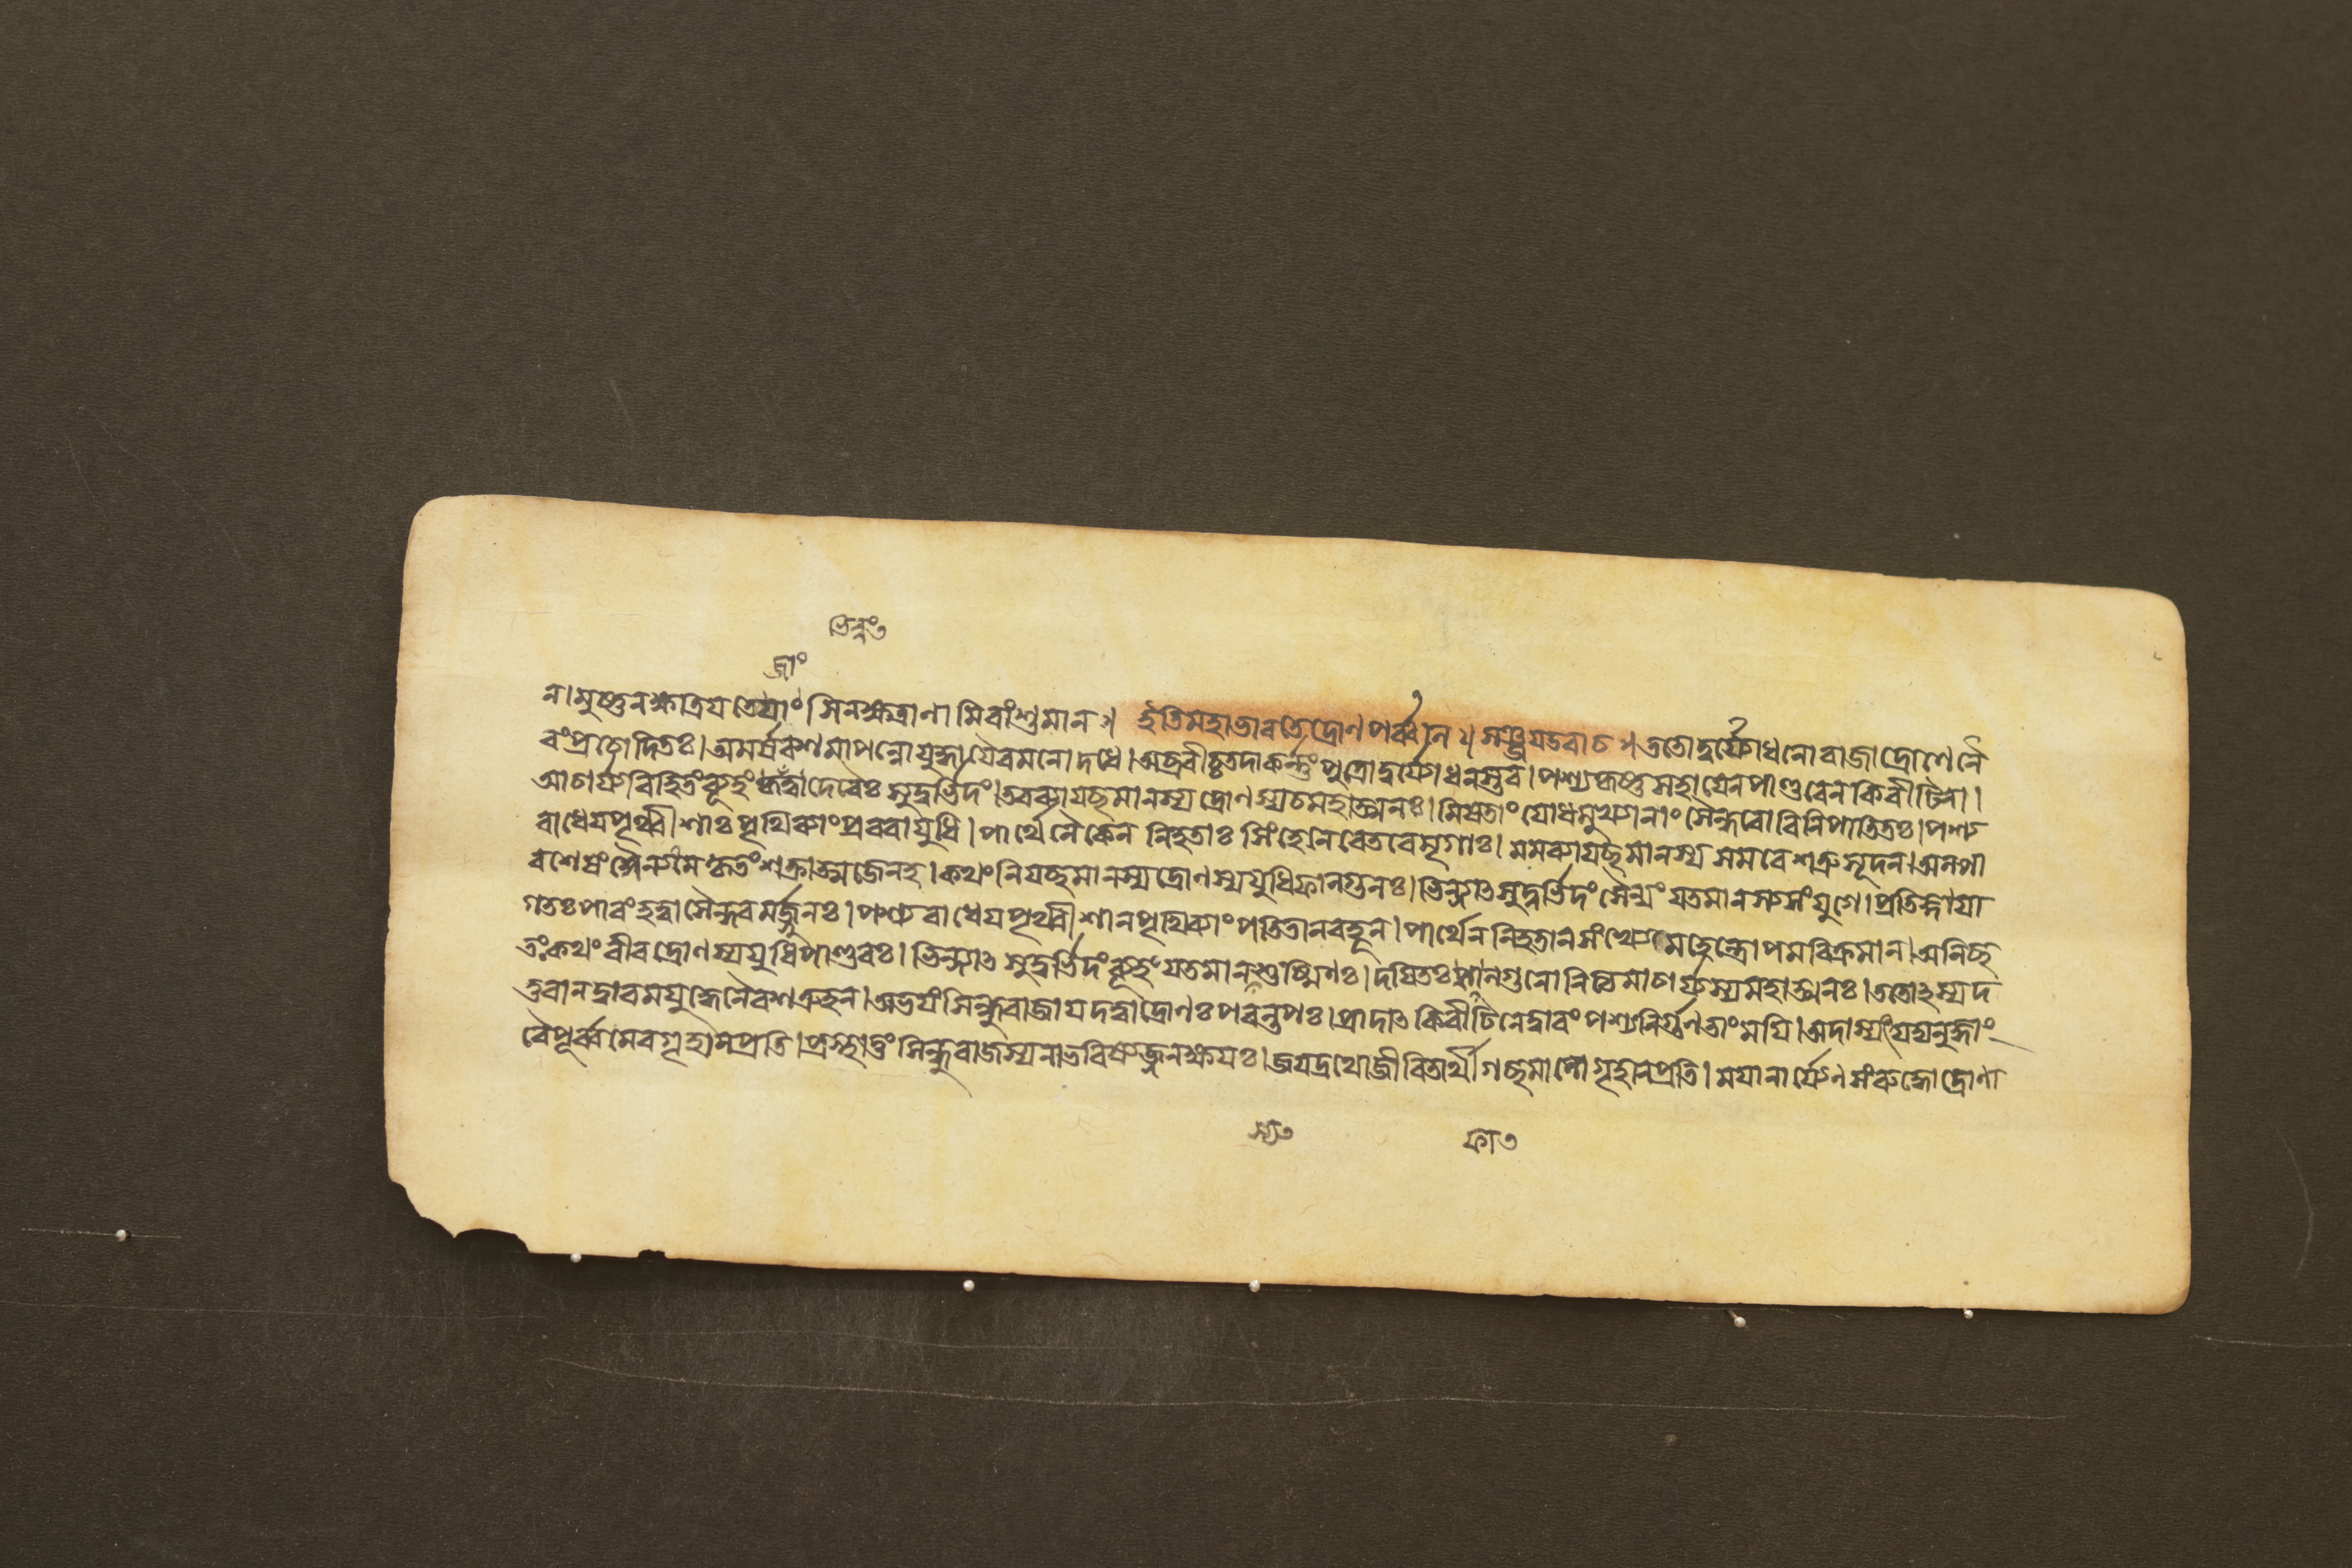 ন।মুষ্ণনক্ষত্রিযতেযাংসিনক্ষত্রাণামিবাংশুমান॥ ইতিমহাভারতেদ্রোণপর্ব্বনি॥ সঞ্জযউবাচ॥ততোদুর্য্যোধনোরাজাদ্রোণেনৈ
বংপ্রচোদিতঃ।অমর্ষবশমাপন্নোযুদ্ধাযৈবমনোদধে।অব্রবীচ্চতদাকর্ন্নংপুত্রোদুর্য্যোধনস্তব।পশ্যকৃষ্ণসহাযেনপাণ্ডবেনকিরীটিনা।
আচার্য্যবিহিতংব্যূহংকৃত্বাদেবৈঃসুদুর্ভিদং।তবব্যাযচ্ছমানস্যদ্রোণস্যচমহাত্মনঃ।মিষতাংযোধমুখ্যানাংসৈন্ধবোবিনিপাতিতঃ।পশ্য
রাধেযপৃথ্বীশাঃপৃথিব্যাংপ্রবরাযুধি।পার্থেনৈকেন নিহতাঃসিংহেনেবেতরেমৃগাঃ।মমব্যাযচ্ছমানস্যসমরেশত্রুসূদন।অল্পা
বশেষংসৈন্যংমেকৃতংশক্রাত্মজেনহ।কথংনিযচ্ছমানস্যদ্রোণস্যযুধিফাল্গুনঃ।ভিন্দ্যাৎসুদুর্ভিদংসৈন্যংযতমানস্যসংযুগে।প্রতিজ্ঞাযা
গতঃপারংহত্বাসৈন্ধবমর্জ্জুনঃ।পশ্যরাধেযপৃথ্বীশানপৃথিব্যাংপতিতানবহূন।পার্থেননিহতানসংখ্যেমহেন্দ্রোপমবিক্রমান।অনিচ্ছ
তঃকথংবীরদ্রোণস্যযুধিপাণ্ডবঃ।ভিন্দ্যাৎসুদুর্ভিদংব্যূহংযতমানস্যশুষ্মিণঃ।দযিতঃফাল্গুনোনিত্যমাচার্য্যস্যমহাত্মনঃ।ততোঽস্যদ
ত্তবানদ্বারমযুদ্ধেনৈবশত্রুহন।অভযংসিন্ধুরাজাযদত্ত্বাদ্রোণঃপরন্তপঃ।প্রাদাৎকিরীটিনেদ্বারংপশ্যনির্গুণতাংমযি।অদাস্যংযদ্যনুজ্ঞাং
বৈপূর্ব্বমেবগৃহানপ্রতি।প্রস্থাতুংসিন্ধুরাজস্যনাভবিষ্যজ্জনক্ষযঃ।জযদ্রথোজীবিতার্থীগচ্ছমানোগৃহানপ্রতি।মযানার্য্যেণসংরুদ্ধোদ্রোণা